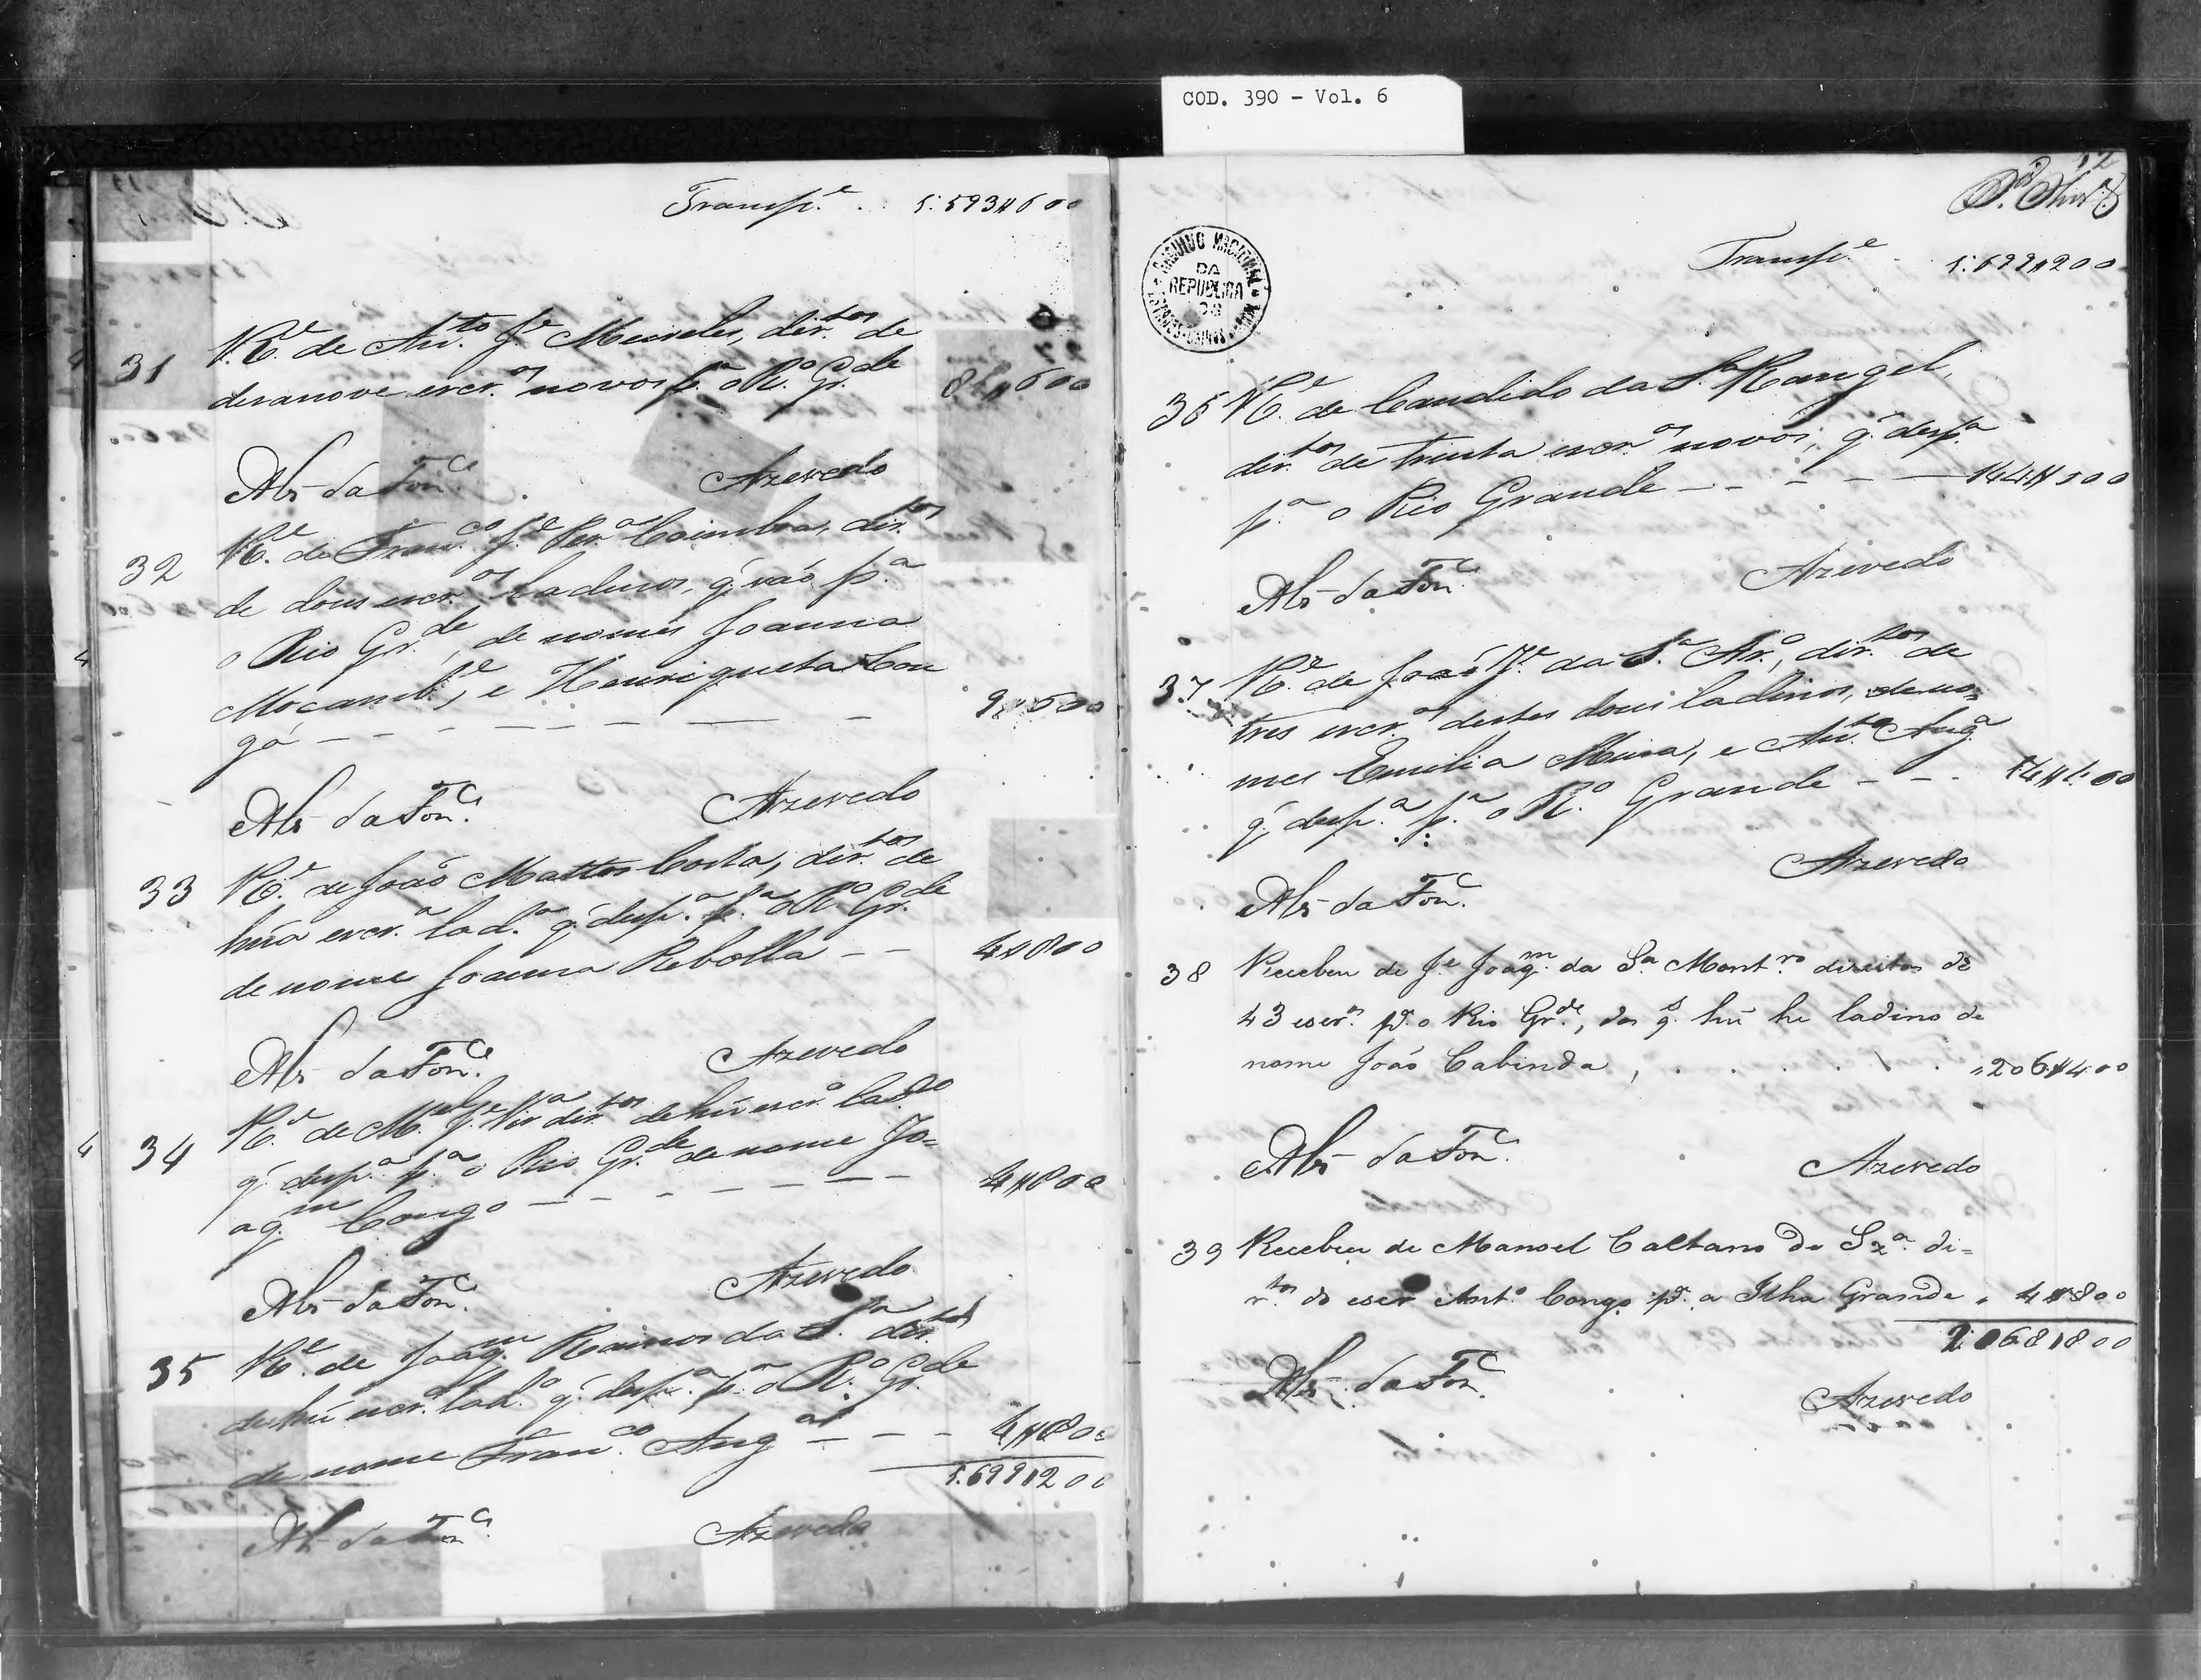 COD. 390 - Vol. 6
Transp.e . . 1:593#600
31 R.e de An.to J.e Meireles, dir.tos de
desanove escr.os novos p.a o R.o Gr.de 81#600
Als da Fon.ca Azevedo
32 R.e de Fran.co J.e Per.a Coimbra, dir.tos
de dous escr.os ladinos, q' vão p.a
o Rio Gr.de, de nomes Joanna
Moçamb.e, e Henriqueta Con
gó - - - - - - - 9#600
Als da Fon.ca Azevedo
33 R.e de João Mattos Costa, dir.tos de
hũa escr.a lad.a q' desp.a p.a o R.o Gr.de
de nome Joanna Rebolla - - 4#800
Als da Fon.ca Azevedo
34 R.e de M.el J.e Vi.a dir.tos de hũ escr.o lad.o
q' desp.a p.a o Rio Gr.de de nome Jo=
aq.m Congo - - - - - - - 4#800
Als da Fon.ca Azevedo
35 R.e de Joaq.m Ramos da S.a dir.tos
de hũ escr.o lad.o q' desp.a p.a o R.o Gr.de
de nome Fran.co Ang.al - - - 4#800
1:699#200
Als da Fon.ca Azevedo
12
ARQUIVO NACIONAL
DA
REPUBLICA
Transp.e 1:699#200
36 R.e de Candido da S.a Rangel,
dir.tos de trinta escr.os novos, q' desp.a
p.a o Rio Grande - - - - 144#000
Als da Fon.ca Azevedo
37 R.e de João J.e da S.a Ar.o, dir.tos de
tres escr.os destes dous ladinos, de no=
mes Emilia Mina, e An.to Ang.a
q' desp.a p.a o R.o Grande - - . 14#400
Azevedo
Als da Fon.ca
38 Recebeu de J.e Joaq.m da S.a Mont.ro direitos de
43 escr.os p.a o Rio Gr.de, dos q.s hũ he ladino de
nome João Cabinda, . . . . . . 206#400
Als da Fon.ca Azevedo
39 Recebeu de Manoel Caetano de Sz.a di=
r.tos do escr.o Ant.o Congo p.a a Ilha Grande . 4#800
2:068#800
Als da Fon.ca Azevedo